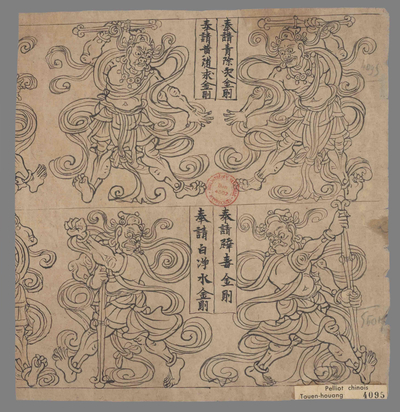 奉請青除灾金剛
奉請黄随求金剛
奉請金剛
奉請白淨水金剛
Pelliot chinois
Touen-houang 4095